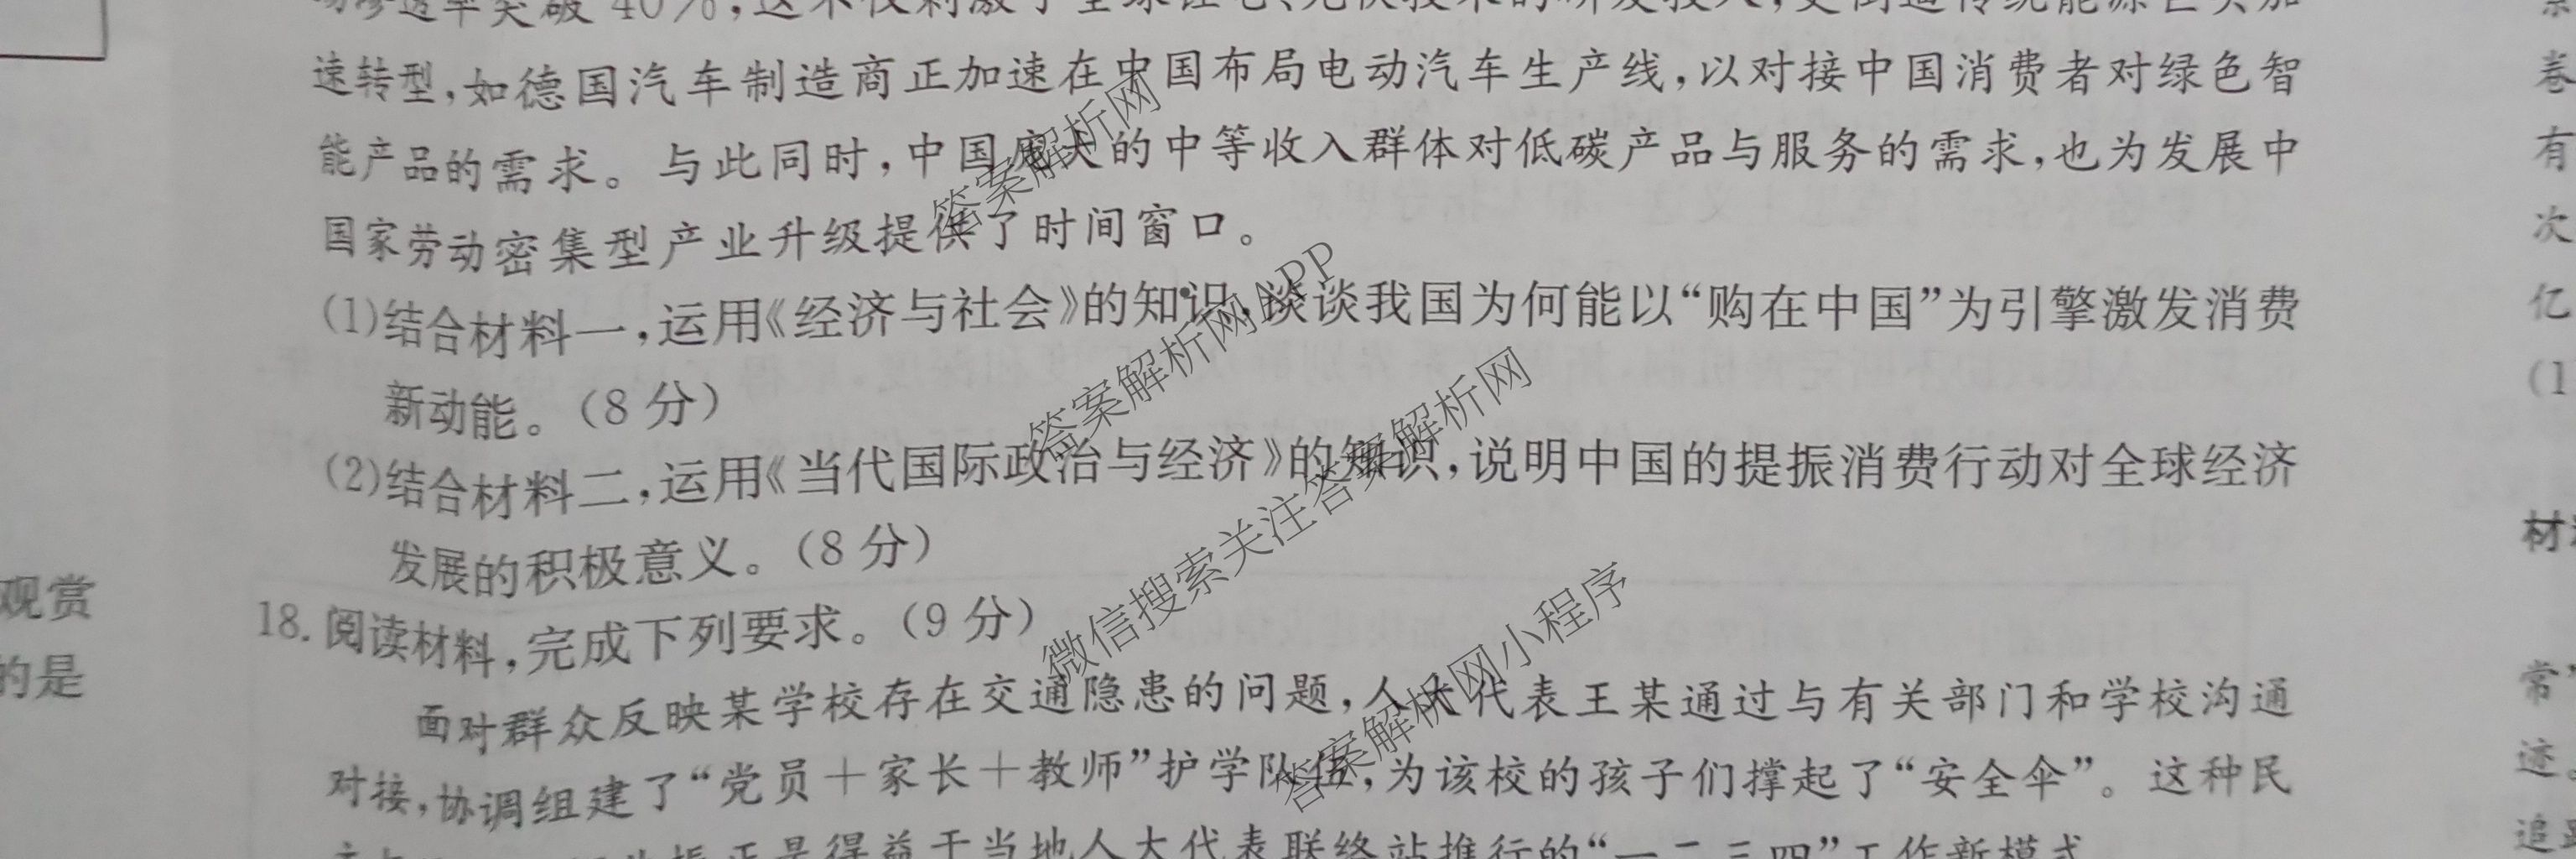 速转型,如德国汽车制造商正加速在中国布局电动汽车生产线,以对接中国消费者对绿色智
能产品的需求。与此同时,中国庞大的中等收入群体对低碳产品与服务的需求,也为发展中
国家劳动密集型产业升级提供了时间窗口。
(1)结合材料一,运用《经济与社会》的知识,谈谈我国为何能以“购在中国”为引擎激发消费
新动能。(8分)
(2)结合材料二,运用《当代国际政治与经济》的知识,说明中国的提振消费行动对全球经济
发展的积极意义。(8分)
18. 阅读材料,完成下列要求。(9分)
面对群众反映某学校存在交通隐患的问题,人大代表王某通过与有关部门和学校沟通
对接,协调组建了“党员+家长+教师”护学队伍,为该校的孩子们撑起了“安全伞”。这种民
正是得益于当地人大代表联络站推行的“一二三四”工作新模式
观赏
的是
卷
有
次
亿
(1
材
常
迹。
追
答案解析网
答案解析网APP
微信搜索关注答案解析网
答案解析网小程序